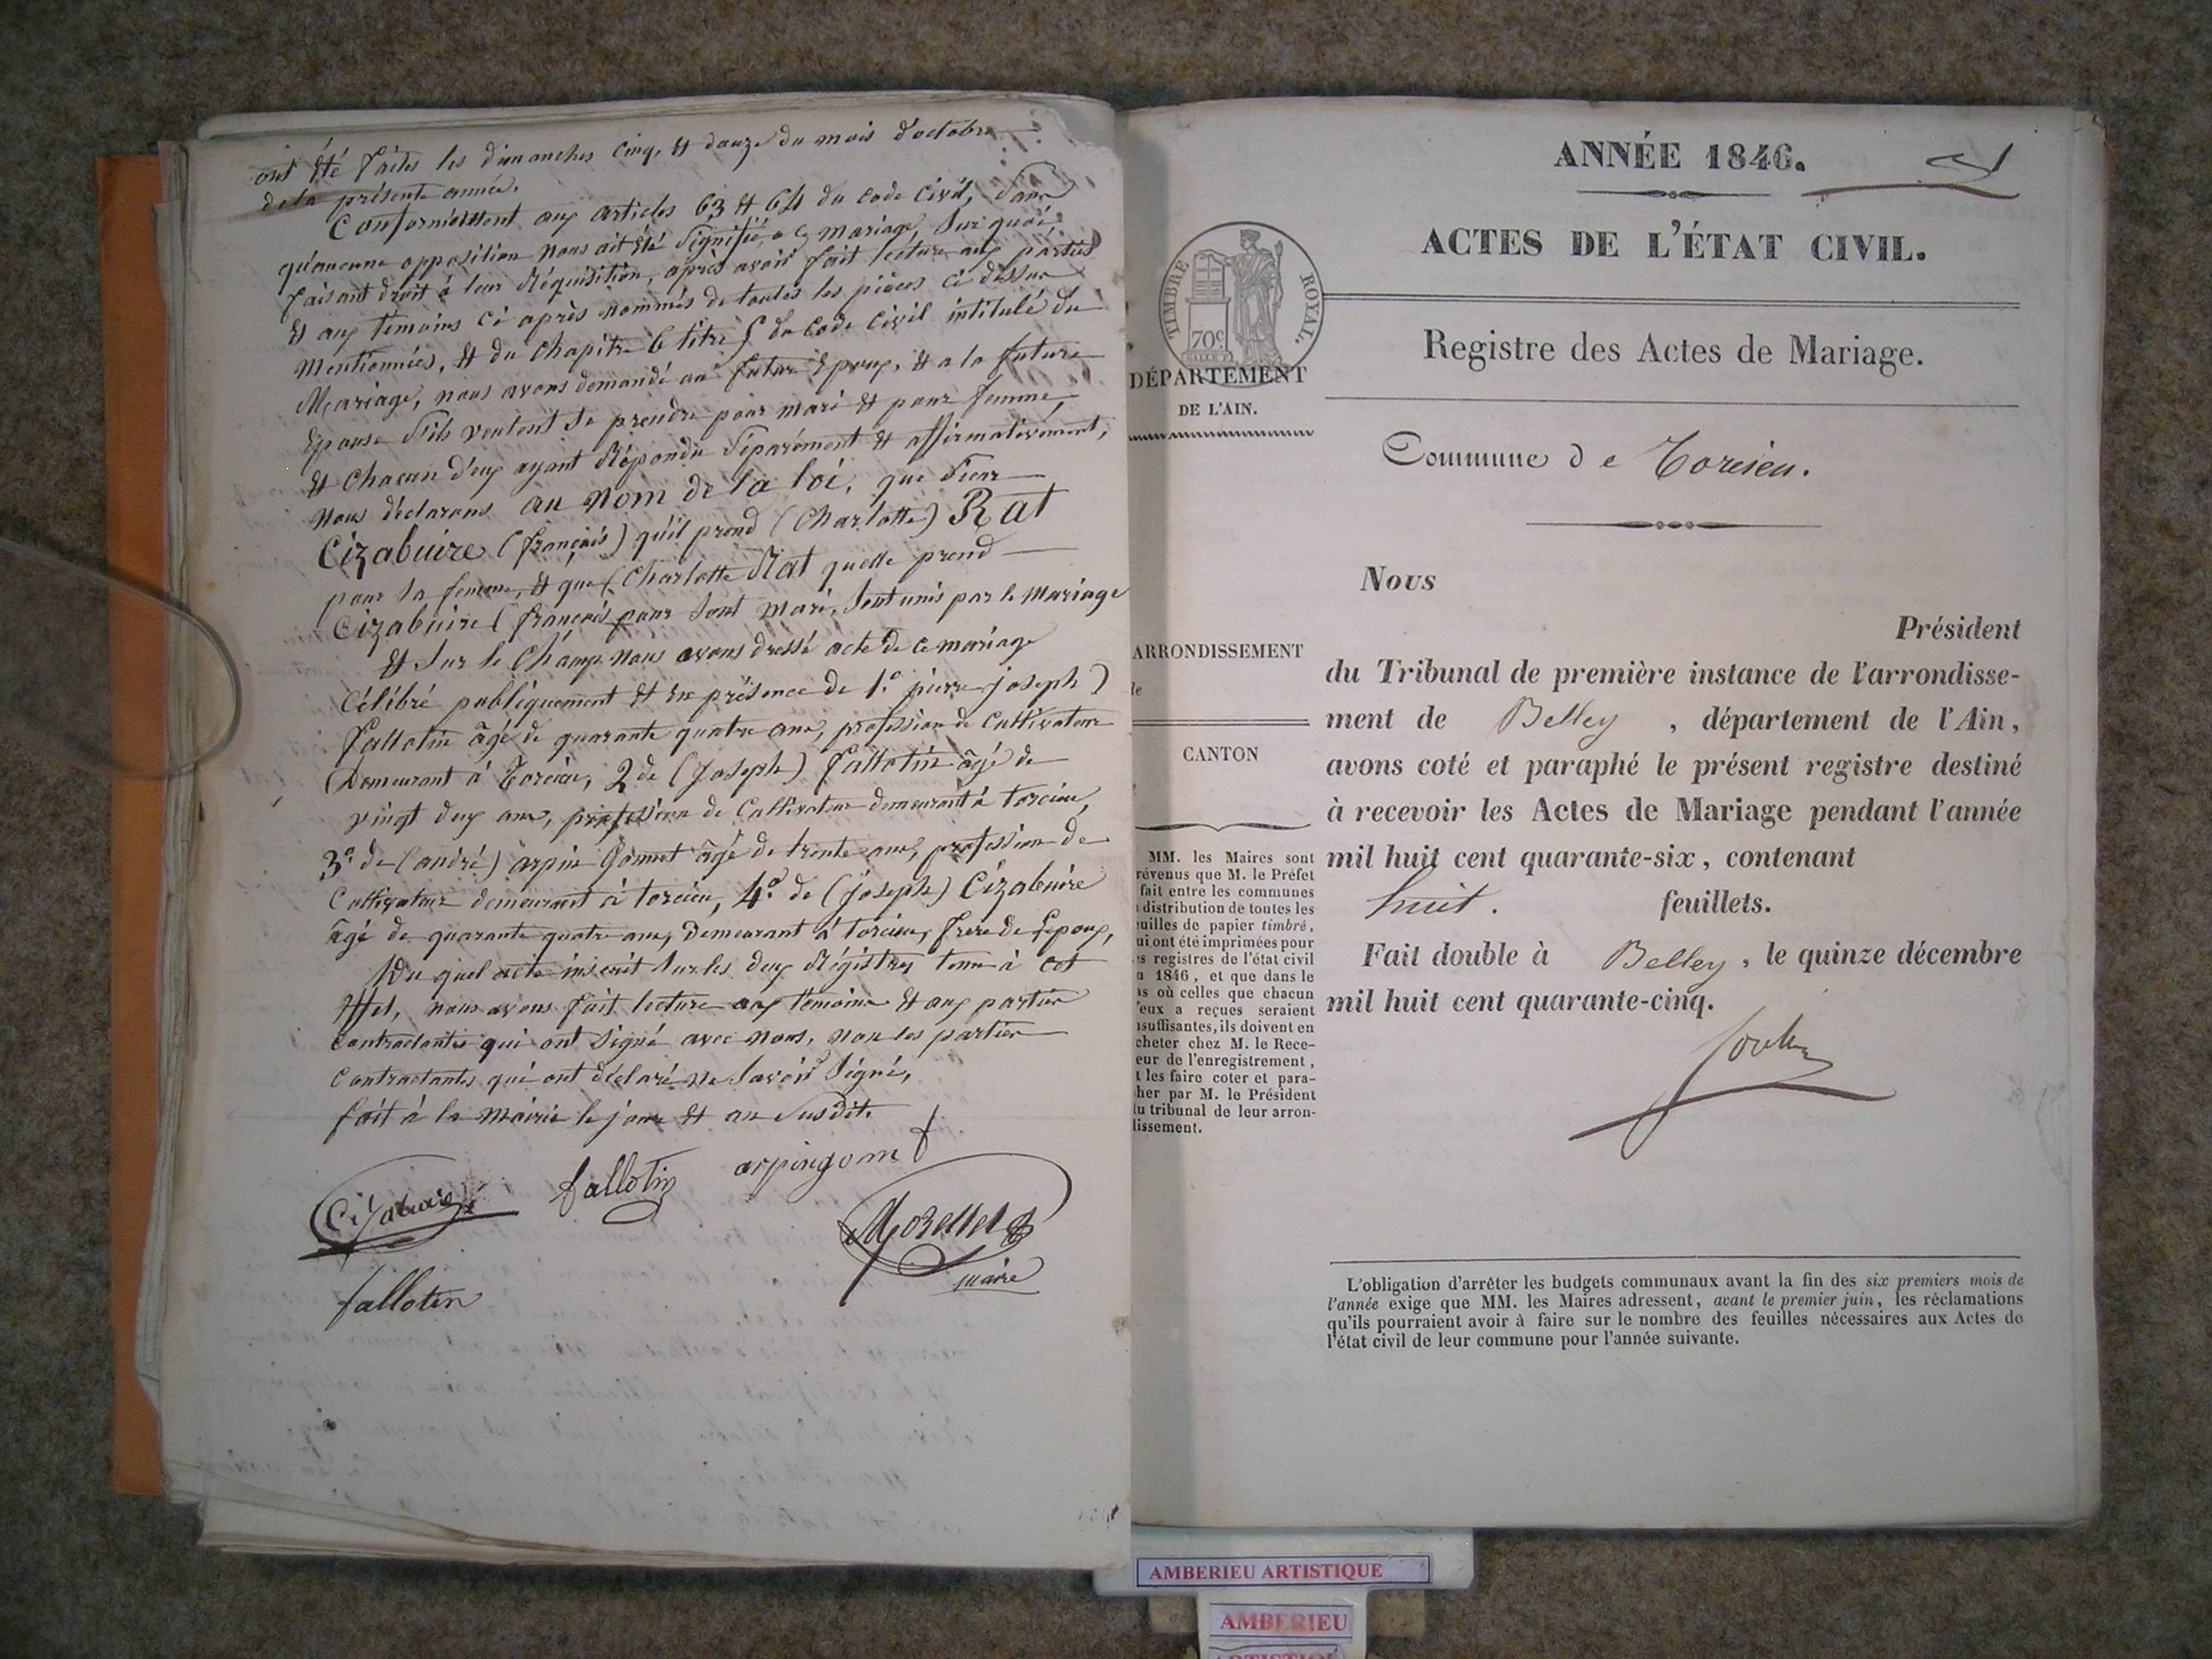 ont été faites les dimanches cinq, et douze du mois d'octobre
de la présente année.
Conformément aux articles 63 et 64 du code civil, sans
qu'aucune opposition nous ait été signifiée, a ce mariage, sur quoi
faisant droit à leur Réquisition, après avoir fait lecture aux parties
et aux témoins ci après nommés de toutes les pièces ci dessus
mentionnées, et du chapitre 6 titre 5 du code civil intitulé du
Mariage, nous avons demandé au futur Epoux, et a la future
Epouse s'ils veulent se prendre pour mari et pour femme,
et chacun d'eux ayant Répondu séparément et affirmativement,
nous déclarons au nom de la loi, que sieur
Cizabuire (françois) qu'il prend (Charlotte) Rat
pour sa femme, et que (Charlotte Rat quelle prend
Cizabuire (françois pour sont mari, sont unis par le mariage
et sur le champ nous avons dressé acte de ce mariage
célébré publiquement et en présence de 1.° pierre joseph)
fallotin âgé de quarante quatre ans, profession de cultivateur
Demeurant à Torcieu, 2 de (Joseph) fallotin âgé de
vingt deux ans, profession de cultivateur demeurant à torcieu,
3.° de (andré) arpin Gonnet âgé de trente ans, profession de
cultivateur demeurant à torcieu, 4.° de (joseph) Cizabuire
âgé de quarante quatre ans, demeurant à torcieu, frere de l'epoux,
Du quel acte inscrit sur les deux Régistres tenu à cet
effet, nous avons fait lecture aux témoins et aux parties
contractantes qui ont signé avec nous, non les parties
contractantes qui ont déclaré ne savoir signé,
fait à la mairie le jour et an susdit.
Cizabuire fallotin arpingonnet
Morellet
maire
fallotin
ANNÉE 1846.
ACTES DE L'ÉTAT CIVIL.
TIMBRE ROYAL.
70c
Registre des Actes de Mariage.
DÉPARTEMENT
DE L'AIN.
Commune de Torcieu.
Nous
Président
ARRONDISSEMENT
du Tribunal de première instance de l'arrondisse-
ment de Belley, département de l'Ain,
CANTON
avons coté et paraphé le présent registre destiné
à recevoir les Actes de Mariage pendant l'année
mil huit cent quarante-six, contenant
huit. feuillets.
Fait double à Belley, le quinze décembre
mil huit cent quarante-cinq.
MM. les Maires sont
révenus que M. le Préfet
fait entre les communes
distribution de toutes les
uilles de papier timbré,
ui ont été imprimées pour
es registres de l'état civil
1846, et que dans le
as où celles que chacun
'eux a reçues seraient
nsuffisantes, ils doivent en
cheter chez M. le Rece-
eur de l'enregistrement,
t les faire coter et para-
her par M. le Président
u tribunal de leur arron-
lissement.
L'obligation d'arrêter les budgets communaux avant la fin des six premiers mois de
l'année exige que MM. les Maires adressent, avant le premier juin, les réclamations
qu'ils pourraient avoir à faire sur le nombre des feuilles nécessaires aux Actes de
l'état civil de leur commune pour l'année suivante.
AMBERIEU ARTISTIQUE
AMBERIEU
ARTISTIQUE